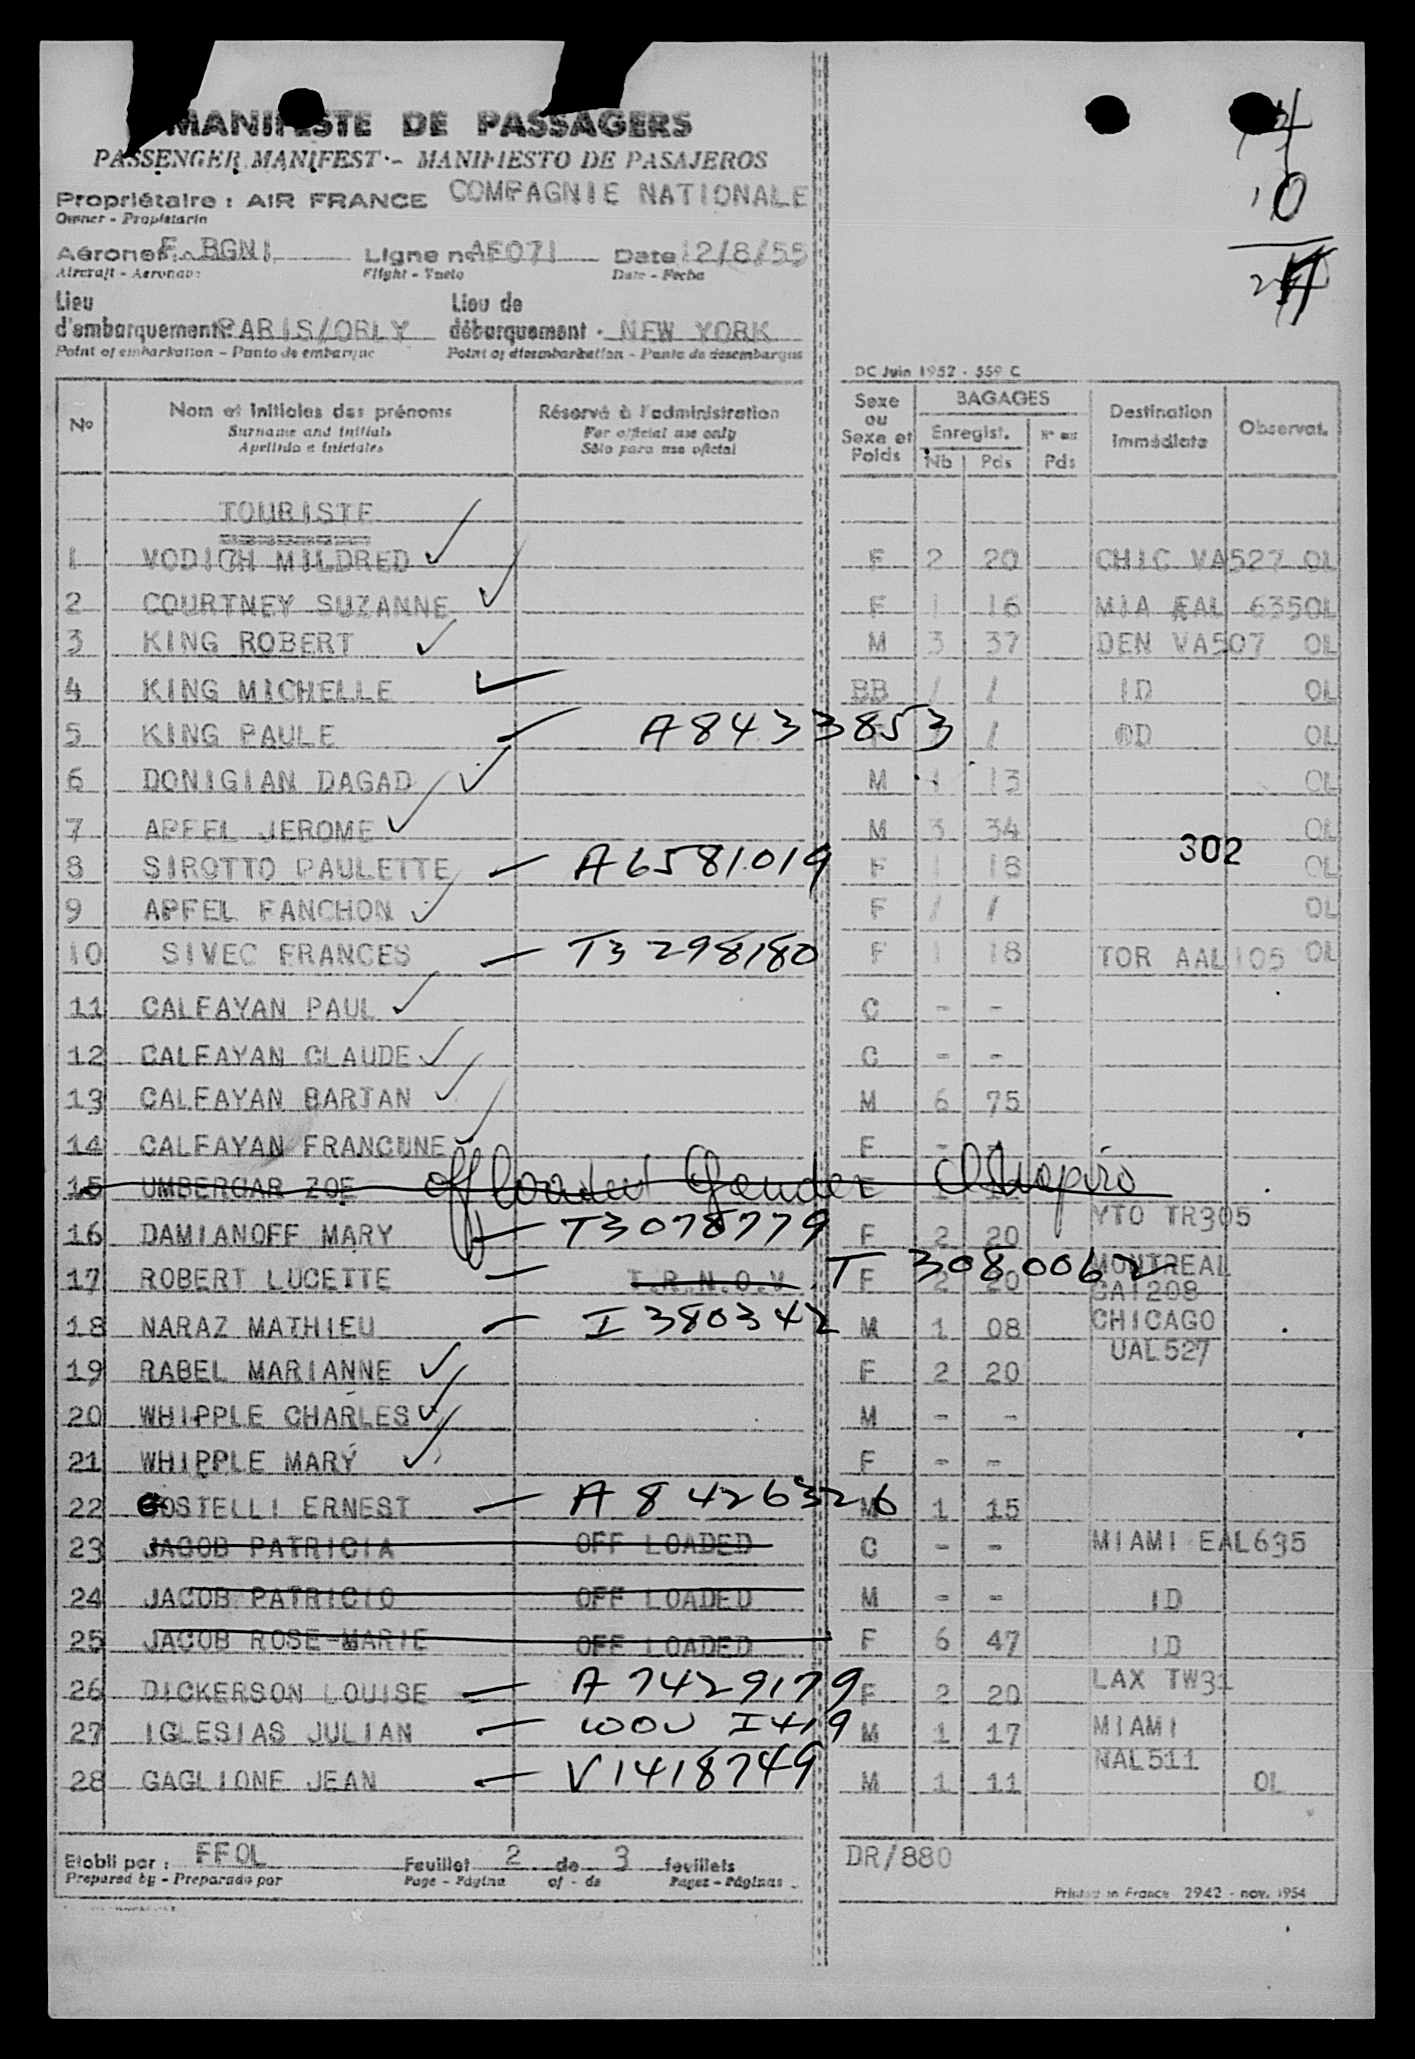 MANIFESTE DE PASSAGERS
PASSENGER MANIFEST - MANIFIESTO DE PASAJEROS
Propriétaire : AIR FRANCE COMPAGNIE NATIONALE
Owner - Propietario
Aéronef F. BGNI Ligne no AF071 Date 12/8/55
Aircraft - Aeronave Flight - Vuelo Date - Fecha
Lieu d'embarquement: PARIS/ORLY Lieu de débarquement NEW YORK
Point of embarkation - Punto de embarque Point of disembarkation - Punto de desembarque
14
10
24
DC Juin 1952 - 559 C
No Nom et initiales des prénoms Réservé à l'administration Sexe ou Sexe et Poids BAGAGES Destination Immédiate Observat.
Surname and initials For official use only Enregist.
Apellido e iniciales Sólo para uso oficial Nb Pds Pds
TOURISTE
1 VODICH MILDRED ✓ F 2 20 CHIC VA527 OL
2 COURTNEY SUZANNE ✓ F 1 16 MIA EAL 635OL
3 KING ROBERT ✓ M 3 37 DEN VA507 OL
4 KING MICHELLE ✓ BB / / ID OL
5 KING PAULE — A8433853 / ID OL
6 DONIGIAN DAGAD ✓ M 1 13 OL
7 APFEL JEROME ✓ M 3 34 OL
302
8 SIROTTO PAULETTE — A6581019 F 1 18 OL
9 APFEL FANCHON ✓ F / / OL
10 SIVEC FRANCES — T3298180 F 1 18 TOR AAL105 OL
11 CALFAYAN PAUL ✓ C - -
12 CALFAYAN CLAUDE ✓ C - -
13 CALFAYAN BARTAN ✓ M 6 75
14 CALFAYAN FRANCUNE ✓ F - -
15 UMBERGAR ZOE off loaded
16 DAMIANOFF MARY — T3078779 F 2 20 YTO TR305
17 ROBERT LUCETTE — T.R.N.O.V T 3080062 F 2 20 MONTREAL CA1208
18 NARAZ MATHIEU — I380342 M 1 08 CHICAGO UAL527
19 RABEL MARIANNE ✓ F 2 20
20 WHIPPLE CHARLES ✓ M - -
21 WHIPPLE MARY ✓ F - -
22 COSTELLI ERNEST — A 8426326 M 1 15
23 JACOB PATRICIA OFF LOADED C - - MIAMI EAL635
24 JACOB PATRICIO OFF LOADED M - - ID
25 JACOB ROSE-MARIE OFF LOADED F 6 47 ID
26 DICKERSON LOUISE — A 7429179 F 2 20 LAX TW31
27 IGLESIAS JULIAN — WOOU I419 M 1 17 MIAMI NAL511
28 GAGLIONE JEAN — V1418749 M 1 11 OL
Etabli par : FFOL Feuillet 2 de 3 feuillets DR/880
Prepared by - Preparado por Page - Página of - de Pages - Páginas
Printed in France 2942 - nov. 1954